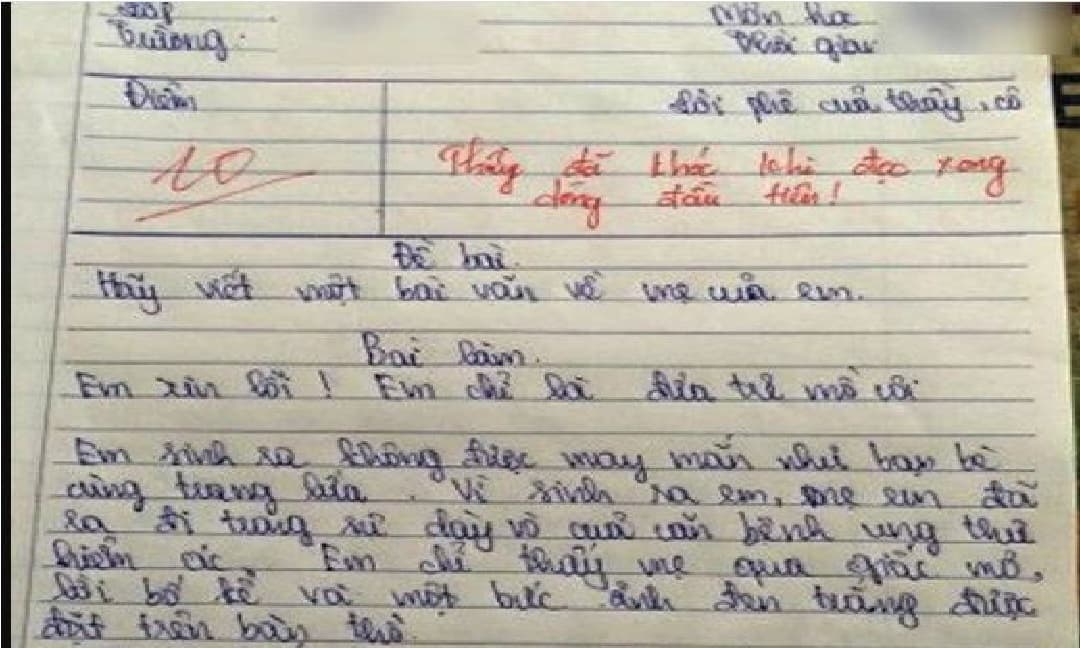 Lớp
Trường:
Môn
Thời gian
Điểm
Lời phê của thầy, cô
10
Thầy đã khóc khi đọc xong
dòng đầu tiên!
Đề bài.
Hãy viết một bài văn về mẹ của em.
Bài làm.
Em xin lỗi! Em chỉ là đứa trẻ mồ côi
Em sinh ra không được may mắn như bạn bè
cùng trang lứa. Vì sinh ra em, mẹ em đã
ra đi trong sự dày vò của căn bệnh ung thư
hiểm ác. Em chỉ thấy mẹ qua giấc mơ,
lời bố kể và một bức ảnh đen trắng được
đặt trên bàn thờ.